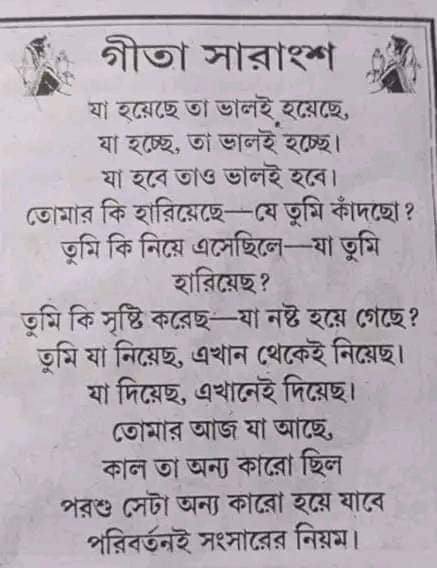 গীতা সারাংশ
যা হয়েছে তা ভালই হয়েছে,
যা হচ্ছে, তা ভালই হচ্ছে।
যা হবে তাও ভালই হবে।
তোমার কি হারিয়েছে—যে তুমি কাঁদছো?
তুমি কি নিয়ে এসেছিলে—যা তুমি
হারিয়েছ?
তুমি কি সৃষ্টি করেছ—যা নষ্ট হয়ে গেছে?
তুমি যা নিয়েছ, এখান থেকেই নিয়েছ।
যা দিয়েছ, এখানেই দিয়েছ।
তোমার আজ যা আছে,
কাল তা অন্য কারো ছিল
পরশু সেটা অন্য কারো হয়ে যাবে
পরিবর্তনই সংসারের নিয়ম।